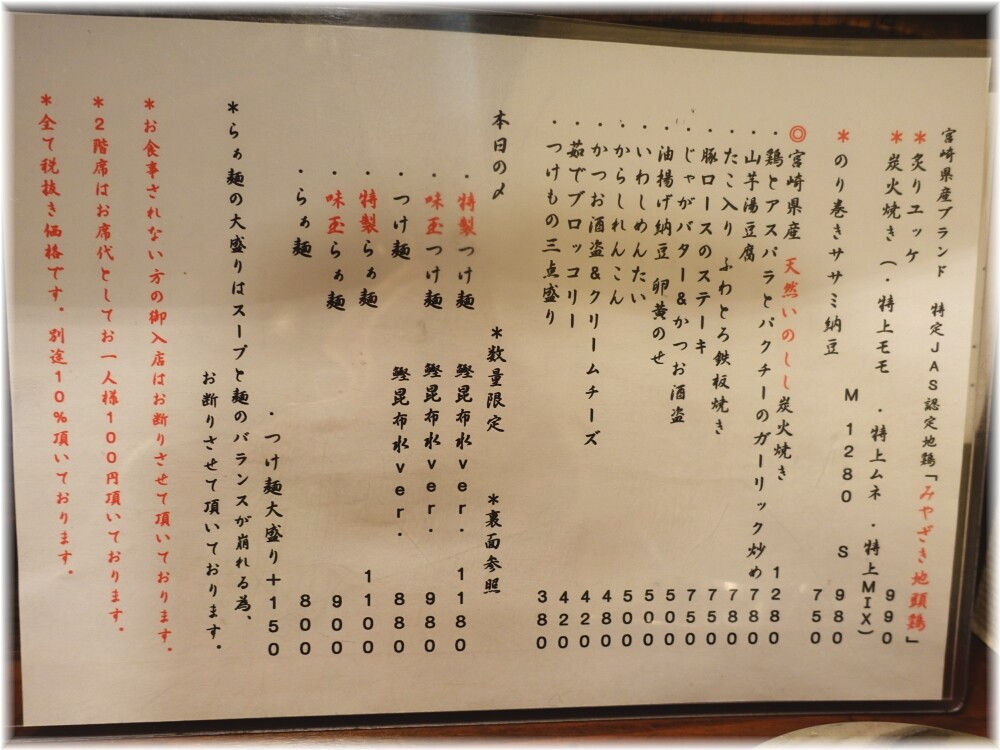 宮崎県産ブランド 特定JAS認定地鶏「みやざき地頭鶏」
＊炙りユッケ 990
＊炭火焼き（・特上モモ ・特上ムネ ・特上MIX）
M 1280 S 980
＊のり巻きササミ納豆 750
◎宮崎県産 天然いのしし炭火焼き 1280
・鶏とアスパラとパクチーのガーリック炒め 780
・山芋湯豆腐 780
・たこ入り ふわとろ鉄板焼き 750
・豚ロースのステーキ 750
・じゃがバター＆かつお酒盗 500
・油揚げ納豆 卵黄のせ 500
・いわしめんたい 500
・からしれんこん 480
・かつお酒盗＆クリームチーズ 420
・茹でブロッコリー 420
・つけもの三点盛り 380
本日の〆 ＊数量限定 ＊裏面参照
・特製つけ麺 鰹昆布水ver. 1180
・味玉つけ麺 鰹昆布水ver. 980
・つけ麺 鰹昆布水ver. 880
・特製らぁ麺 1100
・味玉らぁ麺 900
・らぁ麺 800
・つけ麺大盛り＋150
＊らぁ麺の大盛りはスープと麺のバランスが崩れる為、
お断りさせて頂いております。
＊お食事されない方の御入店はお断りさせて頂いております。
＊2階席はお席代としてお一人様100円頂いております。
＊全て税抜き価格です。別途10%頂いております。